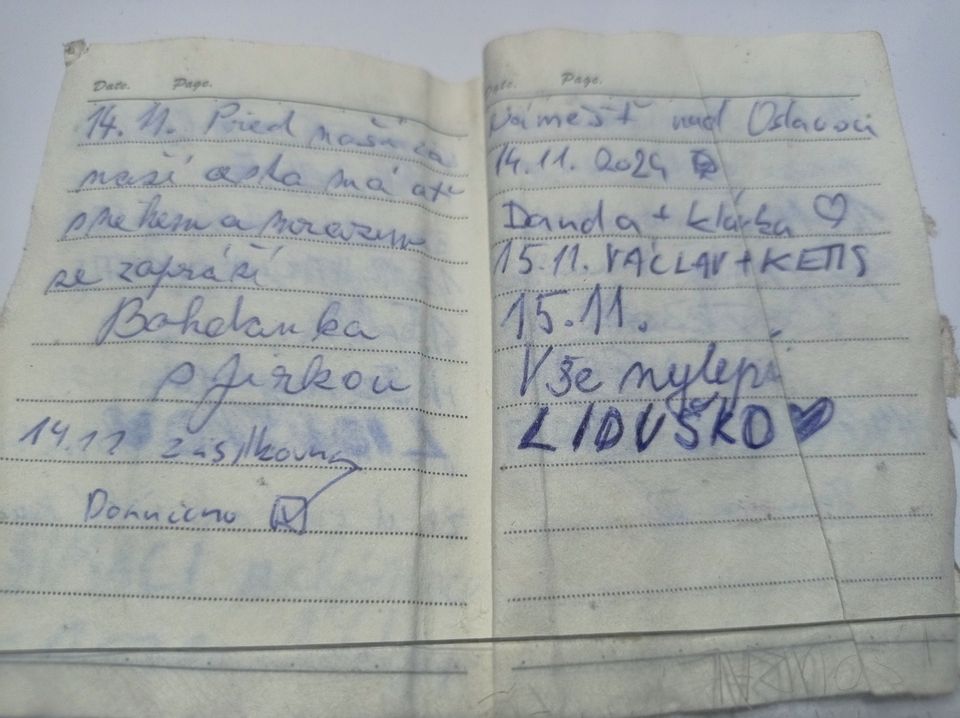 Date. Page.
14.11. Před naší za
naší cesta má ať
smekem a mrazem
se zapráší
Bohdanka
s Jirkou
14.11 zásilkovna
Domicno
Date. Page.
Náměšť nad Oslavou
14.11. 2024
Danda + klárka ♡
15.11. VÁCLAV + KETIS
15.11.
Vše nejlepí
LIDUŠKO ♥